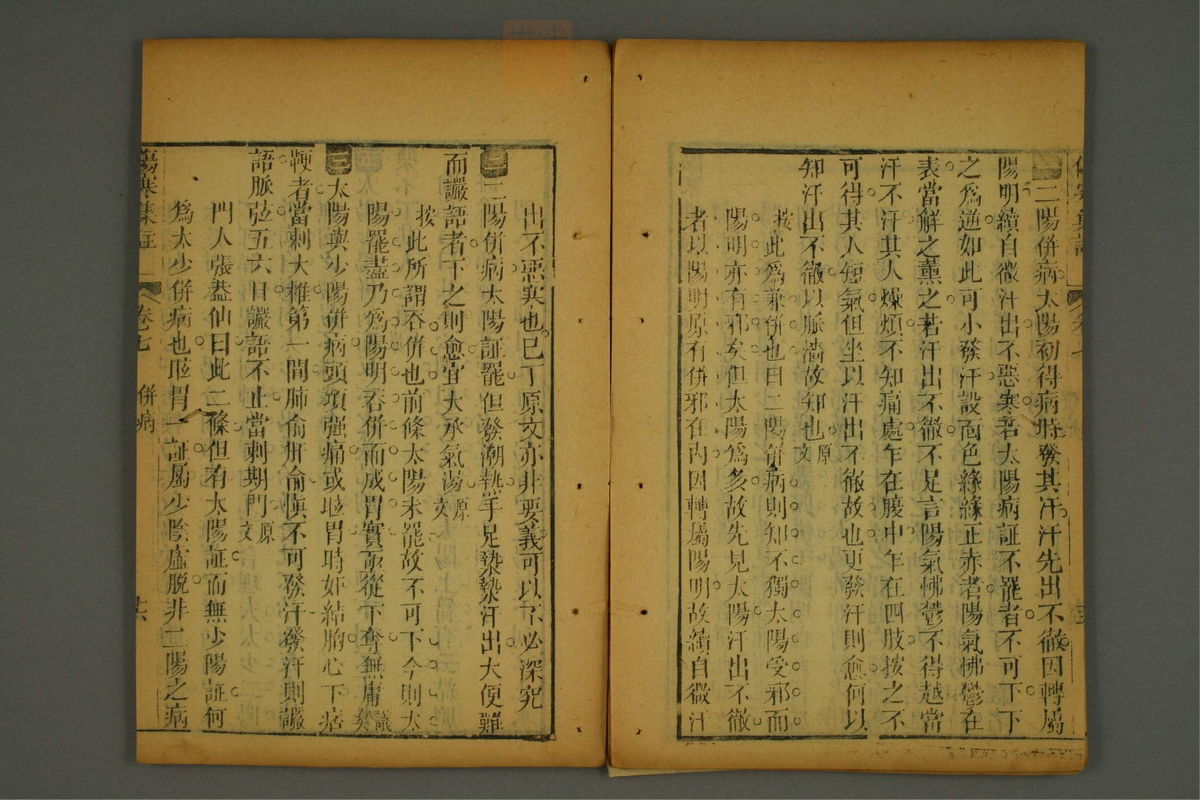 二陽併病太陽初得病時發其汗汗先出不徹因轉屬
陽明續自微汗出不惡寒若太陽病証不罷者不可下下
之爲逆如此可小發汗設面色緣緣正赤者陽氣怫鬱在
表當解之薰之若汗出不徹不足言陽氣怫鬱不得越當
汗不汗其人燥煩不知痛處乍在腹中乍在四肢按之不
可得其人短氣但坐以汗出不徹故也更發汗則愈何以
知汗出不徹以脈濇故知也原文
按此爲兼併也曰二陽併病則知不獨太陽受邪而
陽明亦有邪矣但太陽爲多故先見太陽汗出不徹
者以陽明原有併邪在內因轉屬陽明故續自微汗
出不惡寒也已丁原文亦非要義可以不必深究
二陽併病太陽証罷但發潮熱手足漐漐汗出大便難
而讝語者下之則愈宜大承氣湯原文
按此所謂吞併也前條太陽未罷故不可下今則太
陽罷盡乃爲陽明吞併而成胃實故從下奪無庸議矣
三太陽與少陽併病頭項强痛或眩冒時如結胸心下痞
鞕者當刺大椎第一間肺俞肝俞慎不可發汗發汗則讝
語脈弦五六日讝語不止當刺期門原文
門人張蓋仙曰此二條但有太陽証而無少陽証何
爲太少併病也眩冒一証屬少陰虛脫非二陽之病
傷寒集註 卷七 併病